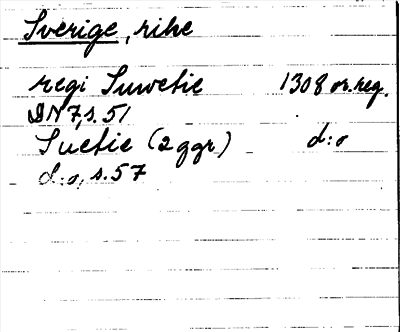 Sverige, rike
regi Suwetie 1308 or. reg.
DN 7, s. 51
Suetie (2 ggr) d:o
d:o, s. 57